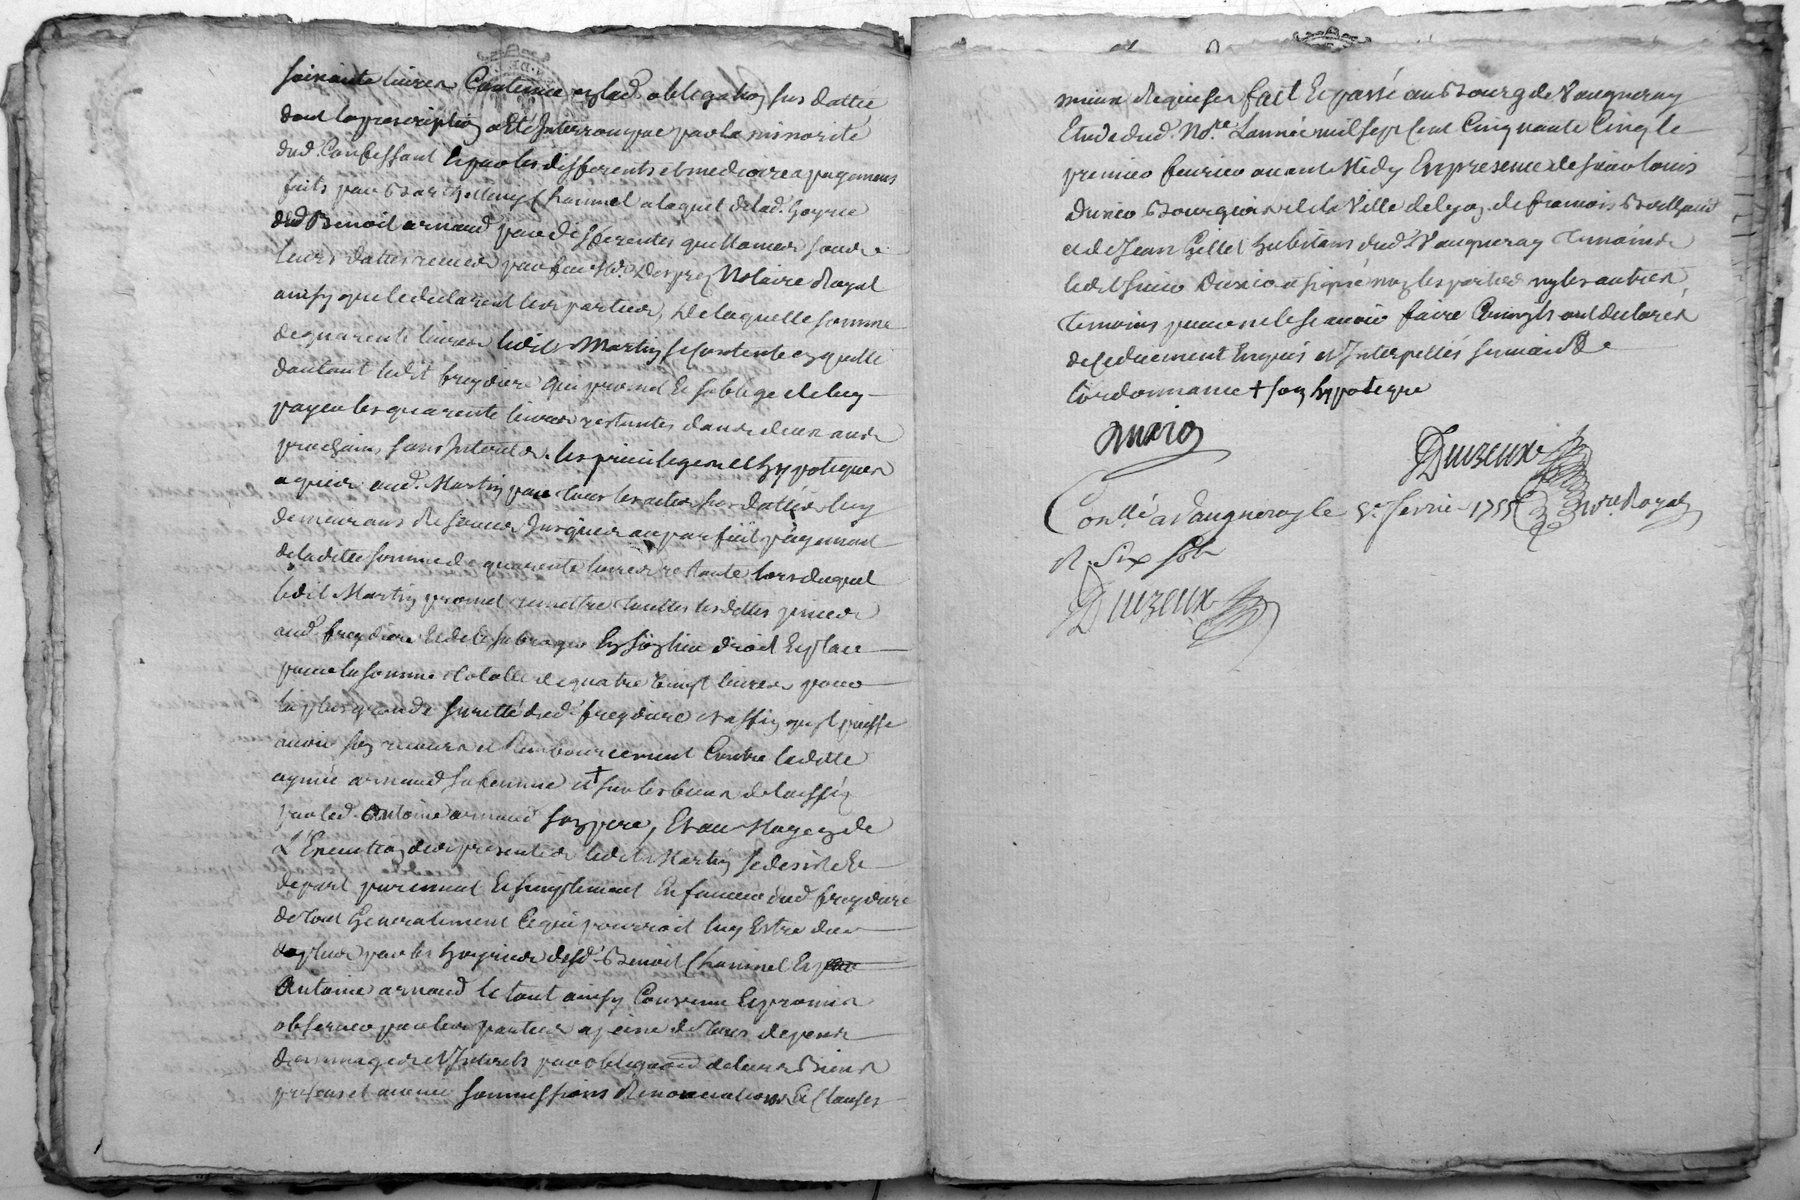 soixante livres Contenue esd. obligation sus dattée
dont la prescription a Eté Interrompue par la minorité
dud. Confessant Et par les differents et mediocres payemens
faits par Barthellemy Chammel a laquit de lad. hoyrie
dud Benoit arnaud par differentes quittances sous
leurs dattes receues par feu Me. Notaire Royal
ainsy que le declarent les parties, De laquelle somme
de quarente livres ledit Martin se contente en quitte
dautant ledit freydiere qui promet Et soblige de luy
payer les quarente livres restantes dans deux ans
prochains sans Interets. les privileges et hypoteques
aquis aud. Martin par tous les actes sus dattés luy
demeurans Reservés Jusques au parfait payement
de la ditte somme de quarente livres restante lors duquel
ledit Martin promet remettre touttes lesdittes pieces
aud. freydiere Et de le subroger En son lieu droit Et place
pour la somme totalle de quatre vingt livres pour
la plus grande suretté dud. freydiere Et affin quil puisse
avoir son recours et Rembourcement Contre laditte
aymée arnaud sa femme et + sur les biens delaissés
par led. Antoine arnaud son pere, Et au Moyen de
L'Execution des presentes ledit Martin se desiste Et
depart purement Et simplement En faveur dud freydiere
de tout Generalement Ce qui pourroit luy Estre deu
de plus par les hoyries desd. Benoit Chammel Et
Antoine arnaud le tout ainsy Convenu Et promis
observer par les parties a peine de tous depens
dommages et Interets par obligaon de leurs Biens
presens et avenir soumissions Renonciations Et Clauses
mieux Requises fait Et passé au Bourg de Vaugneray
Etude dud. No.re Lannée mil sept Cent Cinquante Cinq le
premier fevrier avant Midy En presence de sieur louis
Bourgeois de la Ville de lyon de francois
et de Jean Gillet habitans dud. Vaugneray temoins
ledit sieur a signé non les parties ny les autres
temoins pour ne le scavoir faire Comm'ils ont declarés
de Ce duement Enquis et Interpellés suivant
L'ordonnance + son hypoteque
Duzeux
Con.llé a Vaugneray le 3e. fevrier 1755 No.re Royal
R. Six sols
Duzeux